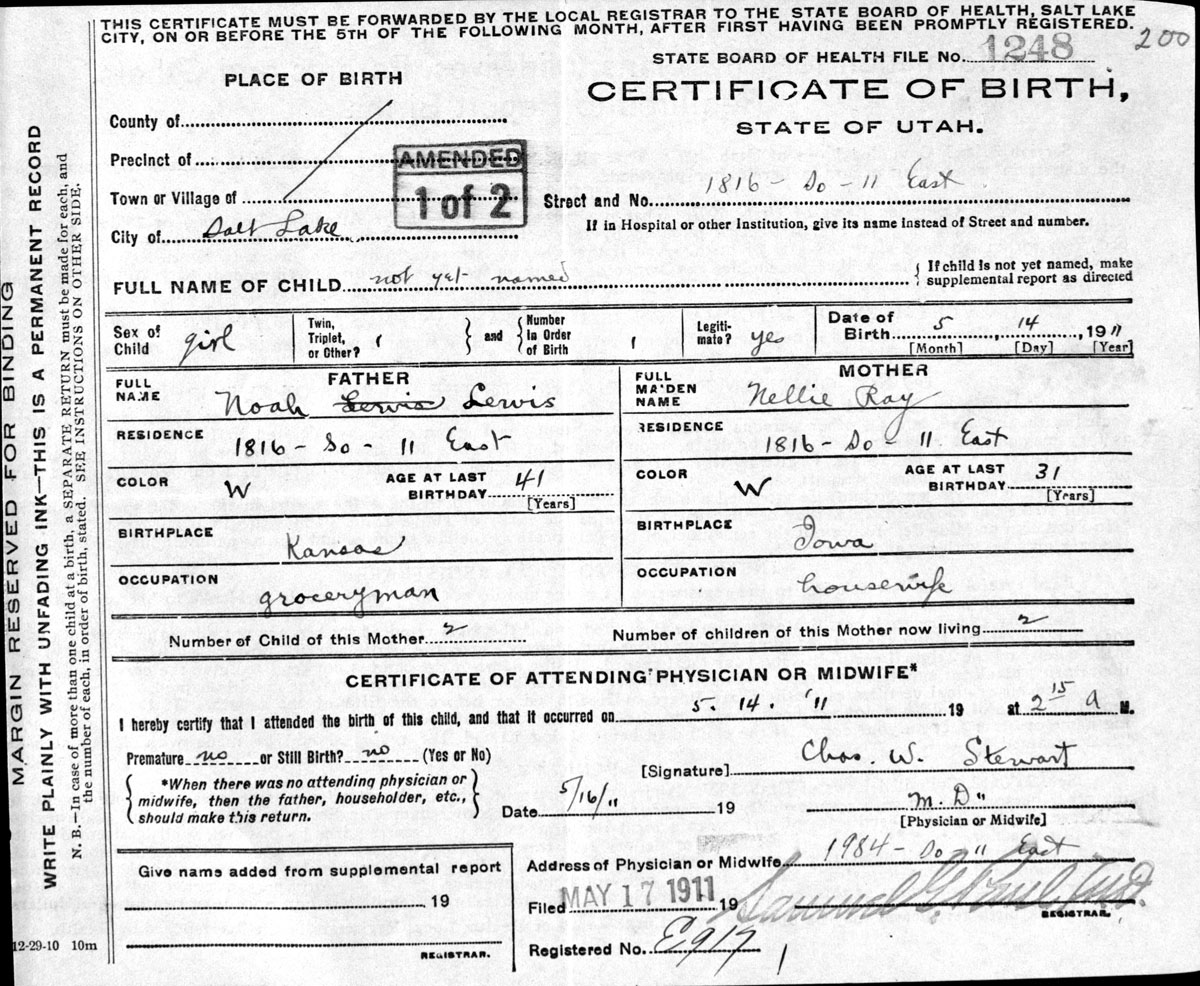 THIS CERTIFICATE MUST BE FORWARDED BY THE LOCAL REGISTRAR TO THE STATE BOARD OF HEALTH, SALT LAKE
CITY, ON OR BEFORE THE 5TH OF THE FOLLOWING MONTH, AFTER FIRST HAVING BEEN PROMPTLY REGISTERED.
200
STATE BOARD OF HEALTH FILE No. 1248
PLACE OF BIRTH
CERTIFICATE OF BIRTH,
STATE OF UTAH.
County of
Precinct of
AMENDED
1 of 2
Town or Village of
Street and No. 1816 - So - 11 East
City of Salt Lake
If in Hospital or other Institution, give its name instead of Street and number.
FULL NAME OF CHILD not yet named
{ If child is not yet named, make
supplemental report as directed
Sex of Child girl
Twin, Triplet, or Other? 1
} and {
Number In Order of Birth 1
Legiti-mate? yes
Date of Birth 5 14, 1911
[Month] [Day] [Year]
FATHER
FULL NAME Noah Lewis Lewis
MOTHER
FULL MAIDEN NAME Nellie Ray
RESIDENCE 1816 - So - 11 East
RESIDENCE 1816 - So - 11 East
COLOR W
AGE AT LAST BIRTHDAY 41 [Years]
COLOR W
AGE AT LAST BIRTHDAY 31 [Years]
BIRTHPLACE Kansas
BIRTHPLACE Iowa
OCCUPATION groceryman
OCCUPATION housewife
Number of Child of this Mother 2
Number of children of this Mother now living 2
CERTIFICATE OF ATTENDING PHYSICIAN OR MIDWIFE*
I hereby certify that I attended the birth of this child, and that it occurred on 5. 14. '11 19 at 2 15 A M.
Premature no or Still Birth? no (Yes or No)
[Signature] Chas. W. Stewart
{ *When there was no attending physician or
midwife, then the father, householder, etc.,
should make this return. }
Date 5/16/11 19
M. D"
[Physician or Midwife]
Give name added from supplemental report
19
REGISTRAR.
Address of Physician or Midwife 1984 - So 11 East
Filed MAY 17 1911 19
Samuel G. Paul
REGISTRAR.
Registered No. E917
12-29-10 10m
MARGIN RESERVED FOR BINDING
WRITE PLAINLY WITH UNFADING INK—THIS IS A PERMANENT RECORD
N. B.—In case of more than one child at a birth, a SEPARATE RETURN must be made for each, and
the number of each, in order of birth, stated. SEE INSTRUCTIONS ON OTHER SIDE.